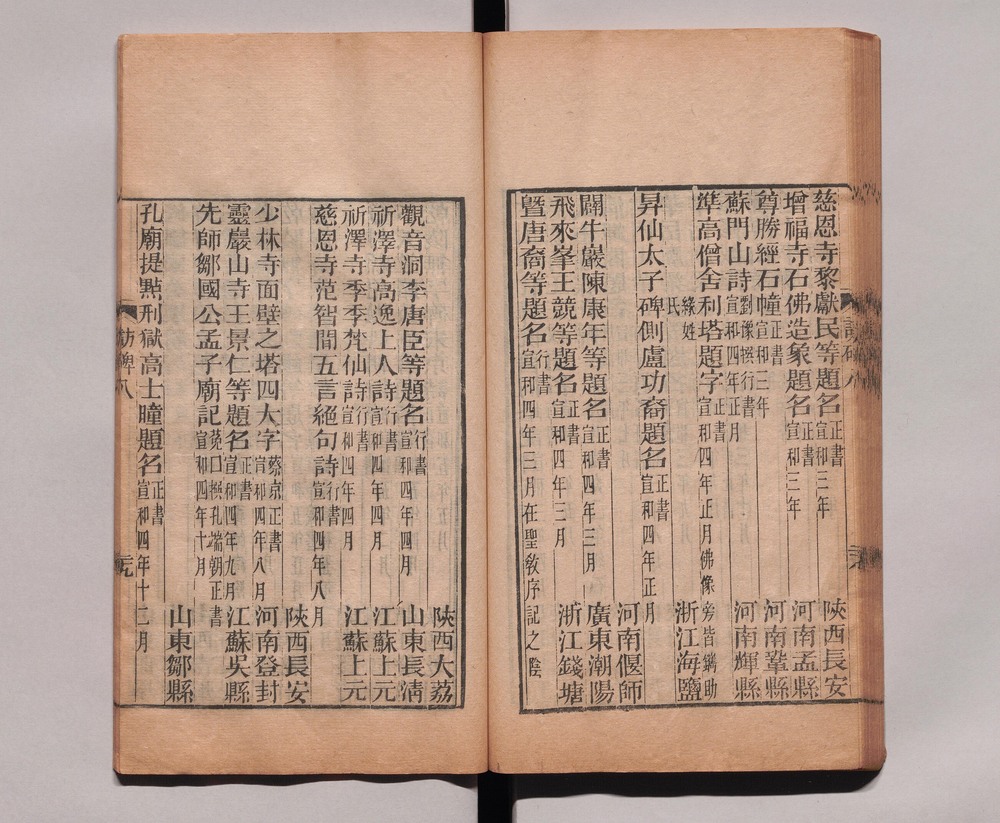 慈恩寺黎獻民等題名正書宣和三年 陝西長安
增福寺石佛造象題名正書宣和三年 河南孟縣
尊勝經石幢正書宣和三年 河南鞏縣
蘇門山詩劉豫撰行書宣和四年正月 河南輝縣
準高僧舍利塔題字正書宣和四年正月佛像旁皆鐫助
緣姓氏 浙江海鹽
昇仙太子碑側盧功裔題名正書宣和四年正月
河南偃師
闢牛巖陳康年等題名正書宣和四年三月 廣東潮陽
飛來峯王競等題名正書宣和四年三月 浙江錢塘
暨唐裔等題名行書宣和四年三月在聖敎序記之陰
陝西大荔
觀音洞李唐臣等題名行書宣和四年四月 山東長淸
祈澤寺高逸上人詩行書宣和四年四月 江蘇上元
祈澤寺季季梵仙詩行書宣和四年四月 江蘇上元
慈恩寺范智聞五言絕句詩行書宣和四年八月
陝西長安
少林寺面壁之塔四大字蔡京正書宣和四年八月 河南登封
靈巖山寺王景仁等題名正書宣和四年九月 江蘇吳縣
先師鄒國公孟子廟記孔端朝正書宣和四年十月
山東鄒縣
孔廟提點刑獄高士曈題名正書宣和四年十二月
訪碑八